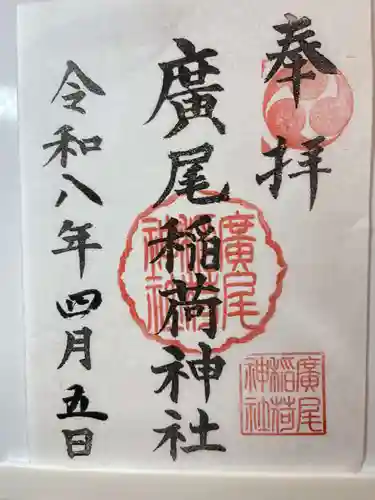 奉拝
廣尾稲荷神社
令和八年四月五日
廣尾
稲荷
神社
廣尾
稲荷
神社